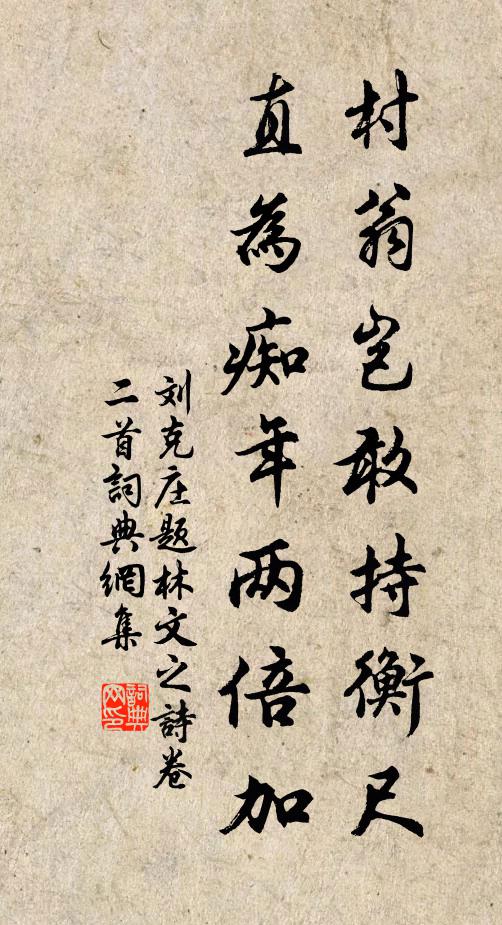 村翁岂敢持衡尺
直為痴年两倍加
刘克庄题林文之詩卷
二首詞典網集
詞典网印